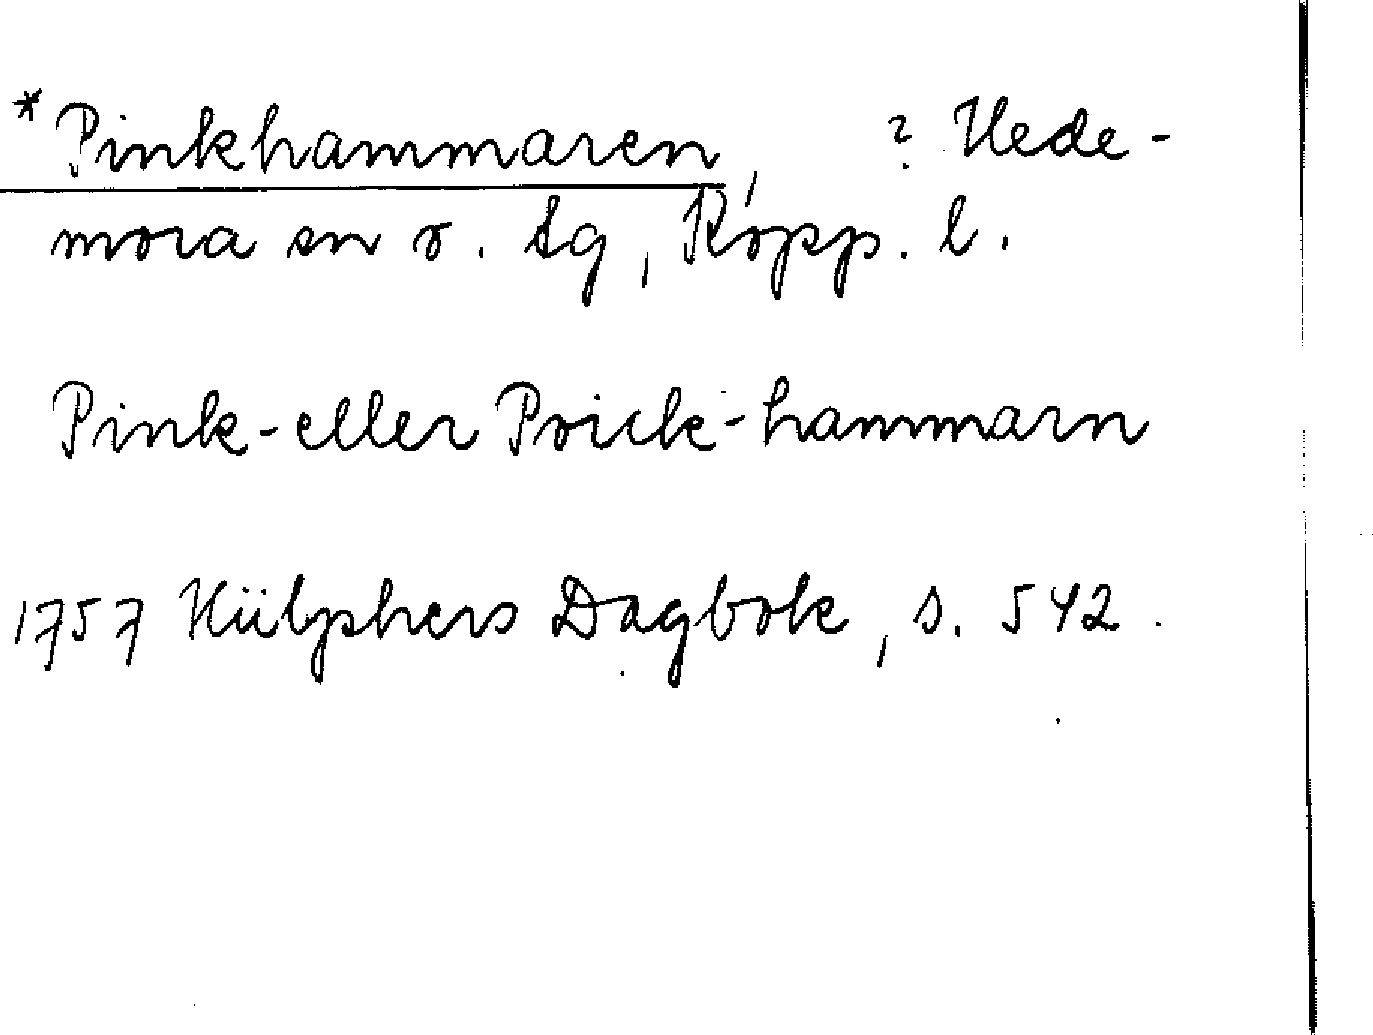 *Pinkhammaren, ? Hede-
mora sn o. tg, Kopp. l.
Pink-eller Prick-hammarn
1757 Hülphers Dagbok, s. 542.